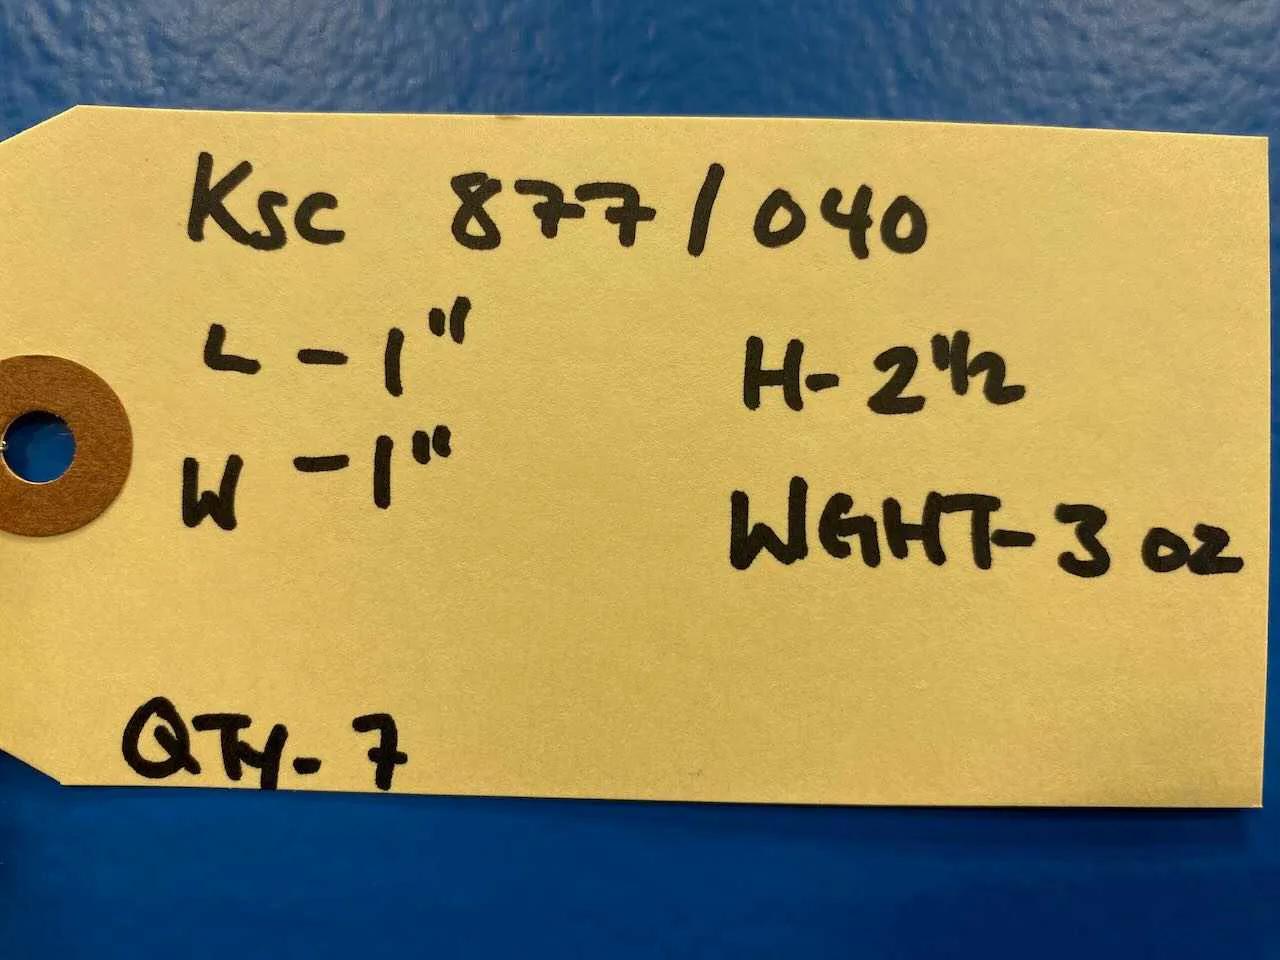 Ksc 877/040
L - 1"
H- 2 1/2
W - 1"
WGHT- 3 oz
QTY- 7